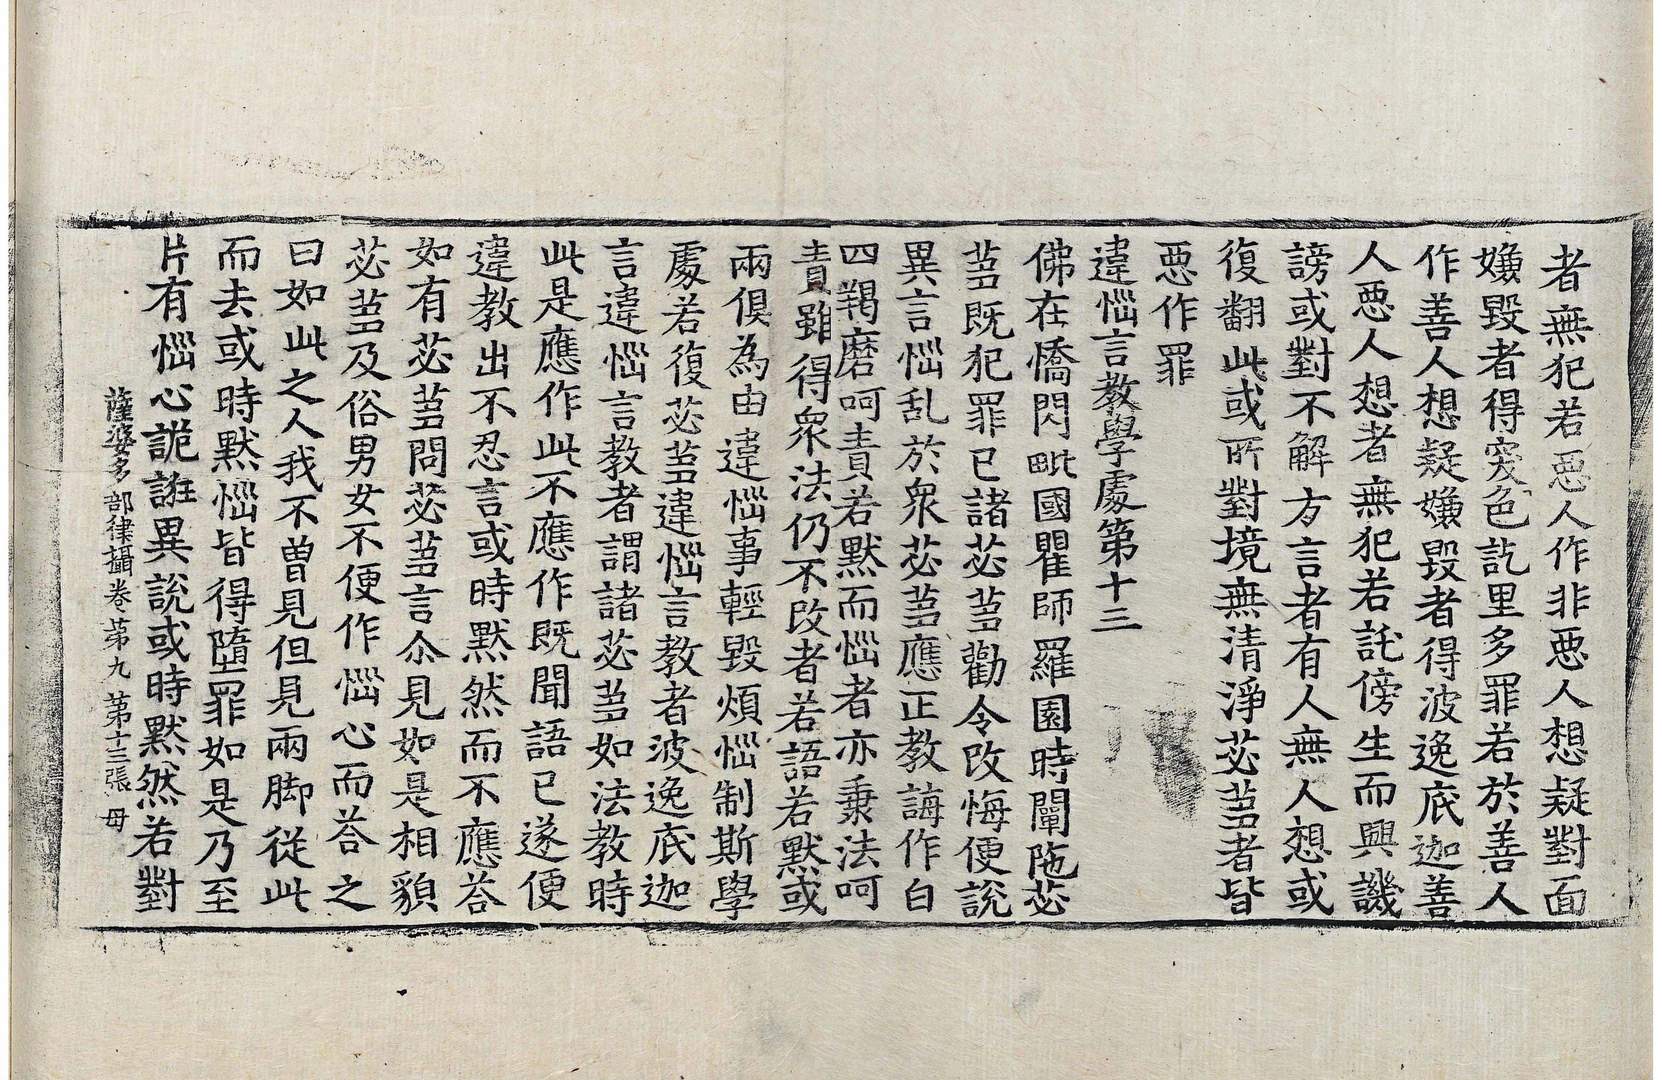 者無犯若惡人作非惡人想疑對面
嫌毀者得窣色訖里多罪若於善人
作善人想疑嫌毀者得波逸底迦善
人惡人想者無犯若託傍生而興譏
謗或對不解方言者有人無人想或
復翻此或所對境無清淨苾芻者皆
惡作罪
違惱言教學處第十三
佛在憍閃毗國瞿師羅園時闡陁苾
芻既犯罪已諸苾芻勸令改悔便說
異言惱乱於衆苾芻應正教誨作白
四羯磨呵責若默而惱者亦秉法呵
責雖得衆法仍不改者若語若默或
兩俱為由違惱事輕毀煩惱制斯學
處若復苾芻違惱言教者波逸底迦
言違惱言教者謂諸苾芻如法教時
此是應作此不應作既聞語已遂便
違教出不忍言或時默然而不應荅
如有苾芻問苾芻言尒見如是相貌
苾芻及俗男女不便作惱心而荅之
曰如此之人我不曾見但見兩脚從此
而去或時默惱皆得墮罪如是乃至
片有惱心詭誑異說或時默然若對
薩婆多部律攝卷第九 第十三張 母